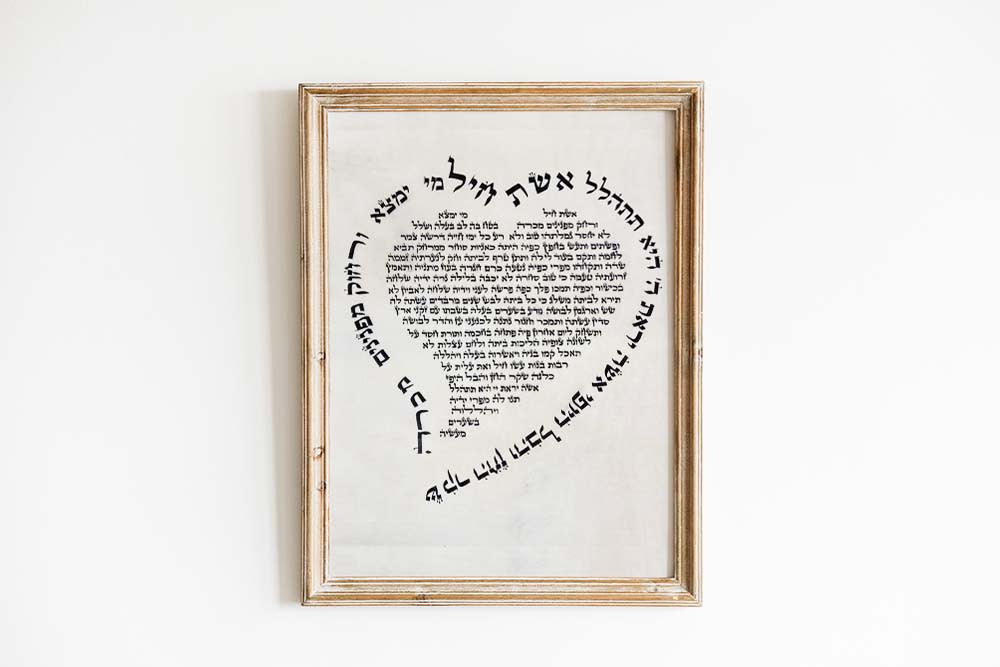 אשת חיל מי ימצא ורחוק מפנינים מכרה
שקר החן והבל היופי אשה יראת ה' היא תתהלל
אשת חיל מי ימצא
ורחק מפנינים מכרה בטח בה לב בעלה ושלל
לא יחסר גמלתהו טוב ולא רע כל ימי חייה דרשה צמר
ופשתים ותעש בחפץ כפיה היתה כאניות סוחר ממרחק תביא
לחמה ותקם בעוד לילה ותתן טרף לביתה וחק לנערתיה זממה
שדה ותקחהו מפרי כפיה נטעה כרם חגרה בעוז מתניה ותאמץ
זרועתיה טעמה כי טוב סחרה לא יכבה בלילה נרה ידיה שלחה
בכישור וכפיה תמכו פלך כפה פרשה לעני וידיה שלחה לאביון לא
תירא לביתה משלג כי כל ביתה לבש שנים מרבדים עשתה לה
שש וארגמן לבושה נודע בשערים בעלה בשבתו עם זקני ארץ
סדין עשתה ותמכר וחגור נתנה לכנעני עז והדר לבושה
ותשחק ליום אחרון פיה פתחה בחכמה ותורת חסד על
לשונה צופיה הליכות ביתה ולחם עצלות לא
תאכל קמו בניה ויאשרוה בעלה ויהללה
רבות בנות עשו חיל ואת עלית על
כלנה שקר החן והבל היופי
אשה יראת יי היא תתהלל
תנו לה מפרי ידיה
ויהללוה
בשערים
מעשיה